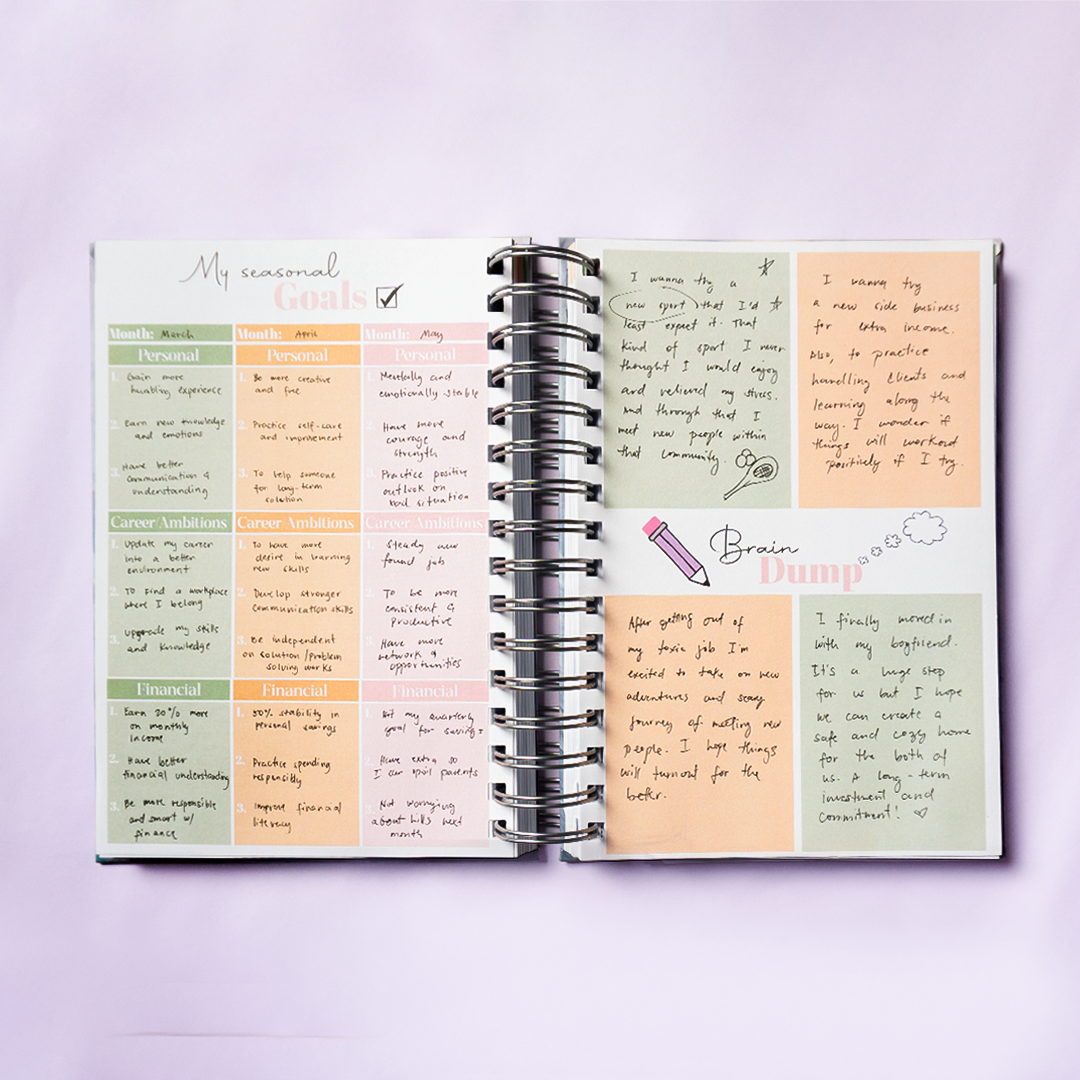 My seasonal
Goals
Month: March
Personal
1. Gain more
humbling experience
2. Earn new knowledge
and emotions
3. Have better
communication &
understanding
Career/Ambitions
1. Update my career
into a better
environment
2. To find a workplace
where I belong
3. upgrade my skills
and knowledge
Financial
1. Earn 30% more
on monthly
income
2. Have better
financial understanding
3. Be more responsible
and smart w/
finance
Month: April
Personal
1. Be more creative
and free
2. Practice self-care
and improvement
3. To help someone
for long-term
solution
Career/Ambitions
1. To have more
desire in learning
new skills
2. Develop stronger
communication skills
3. Be independent
on solution/problem
solving works
Financial
1. 50% stability in
personal savings
2. Practice spending
responsibly
3. Improve financial
literacy
Month: May
Personal
1. Mentally and
emotionally stable
2. Have more
courage and
strength
3. Practice positive
outlook on
bad situation
Career/Ambitions
1. Steady new
found job
2. To be more
consistent &
productive
3. Have more
network &
opportunities
Financial
1. Hit my quarterly
goal for savings
2. Have extra so
I can spoil parents
3. Not worrying
about bills next
month
I wanna try a
new sport that I'd
least expect it. That
kind of sport I never
thought I would enjoy
and relieved my stress.
And through that I
meet new people within
that community.
I wanna try
a new side business
for extra income.
Also, to practice
handling clients and
learning along the
way. I wonder if
things will workout
positively if I try.
Brain
Dump
After getting out of
my toxic job I'm
excited to take on new
adventures and scary
journey of meeting new
people. I hope things
will turnout for the
better.
I finally moved in
with my boyfriend.
It's a huge step
for us but I hope
we can create a
safe and cozy home
for the both of
us. A long-term
investment and
commitment!